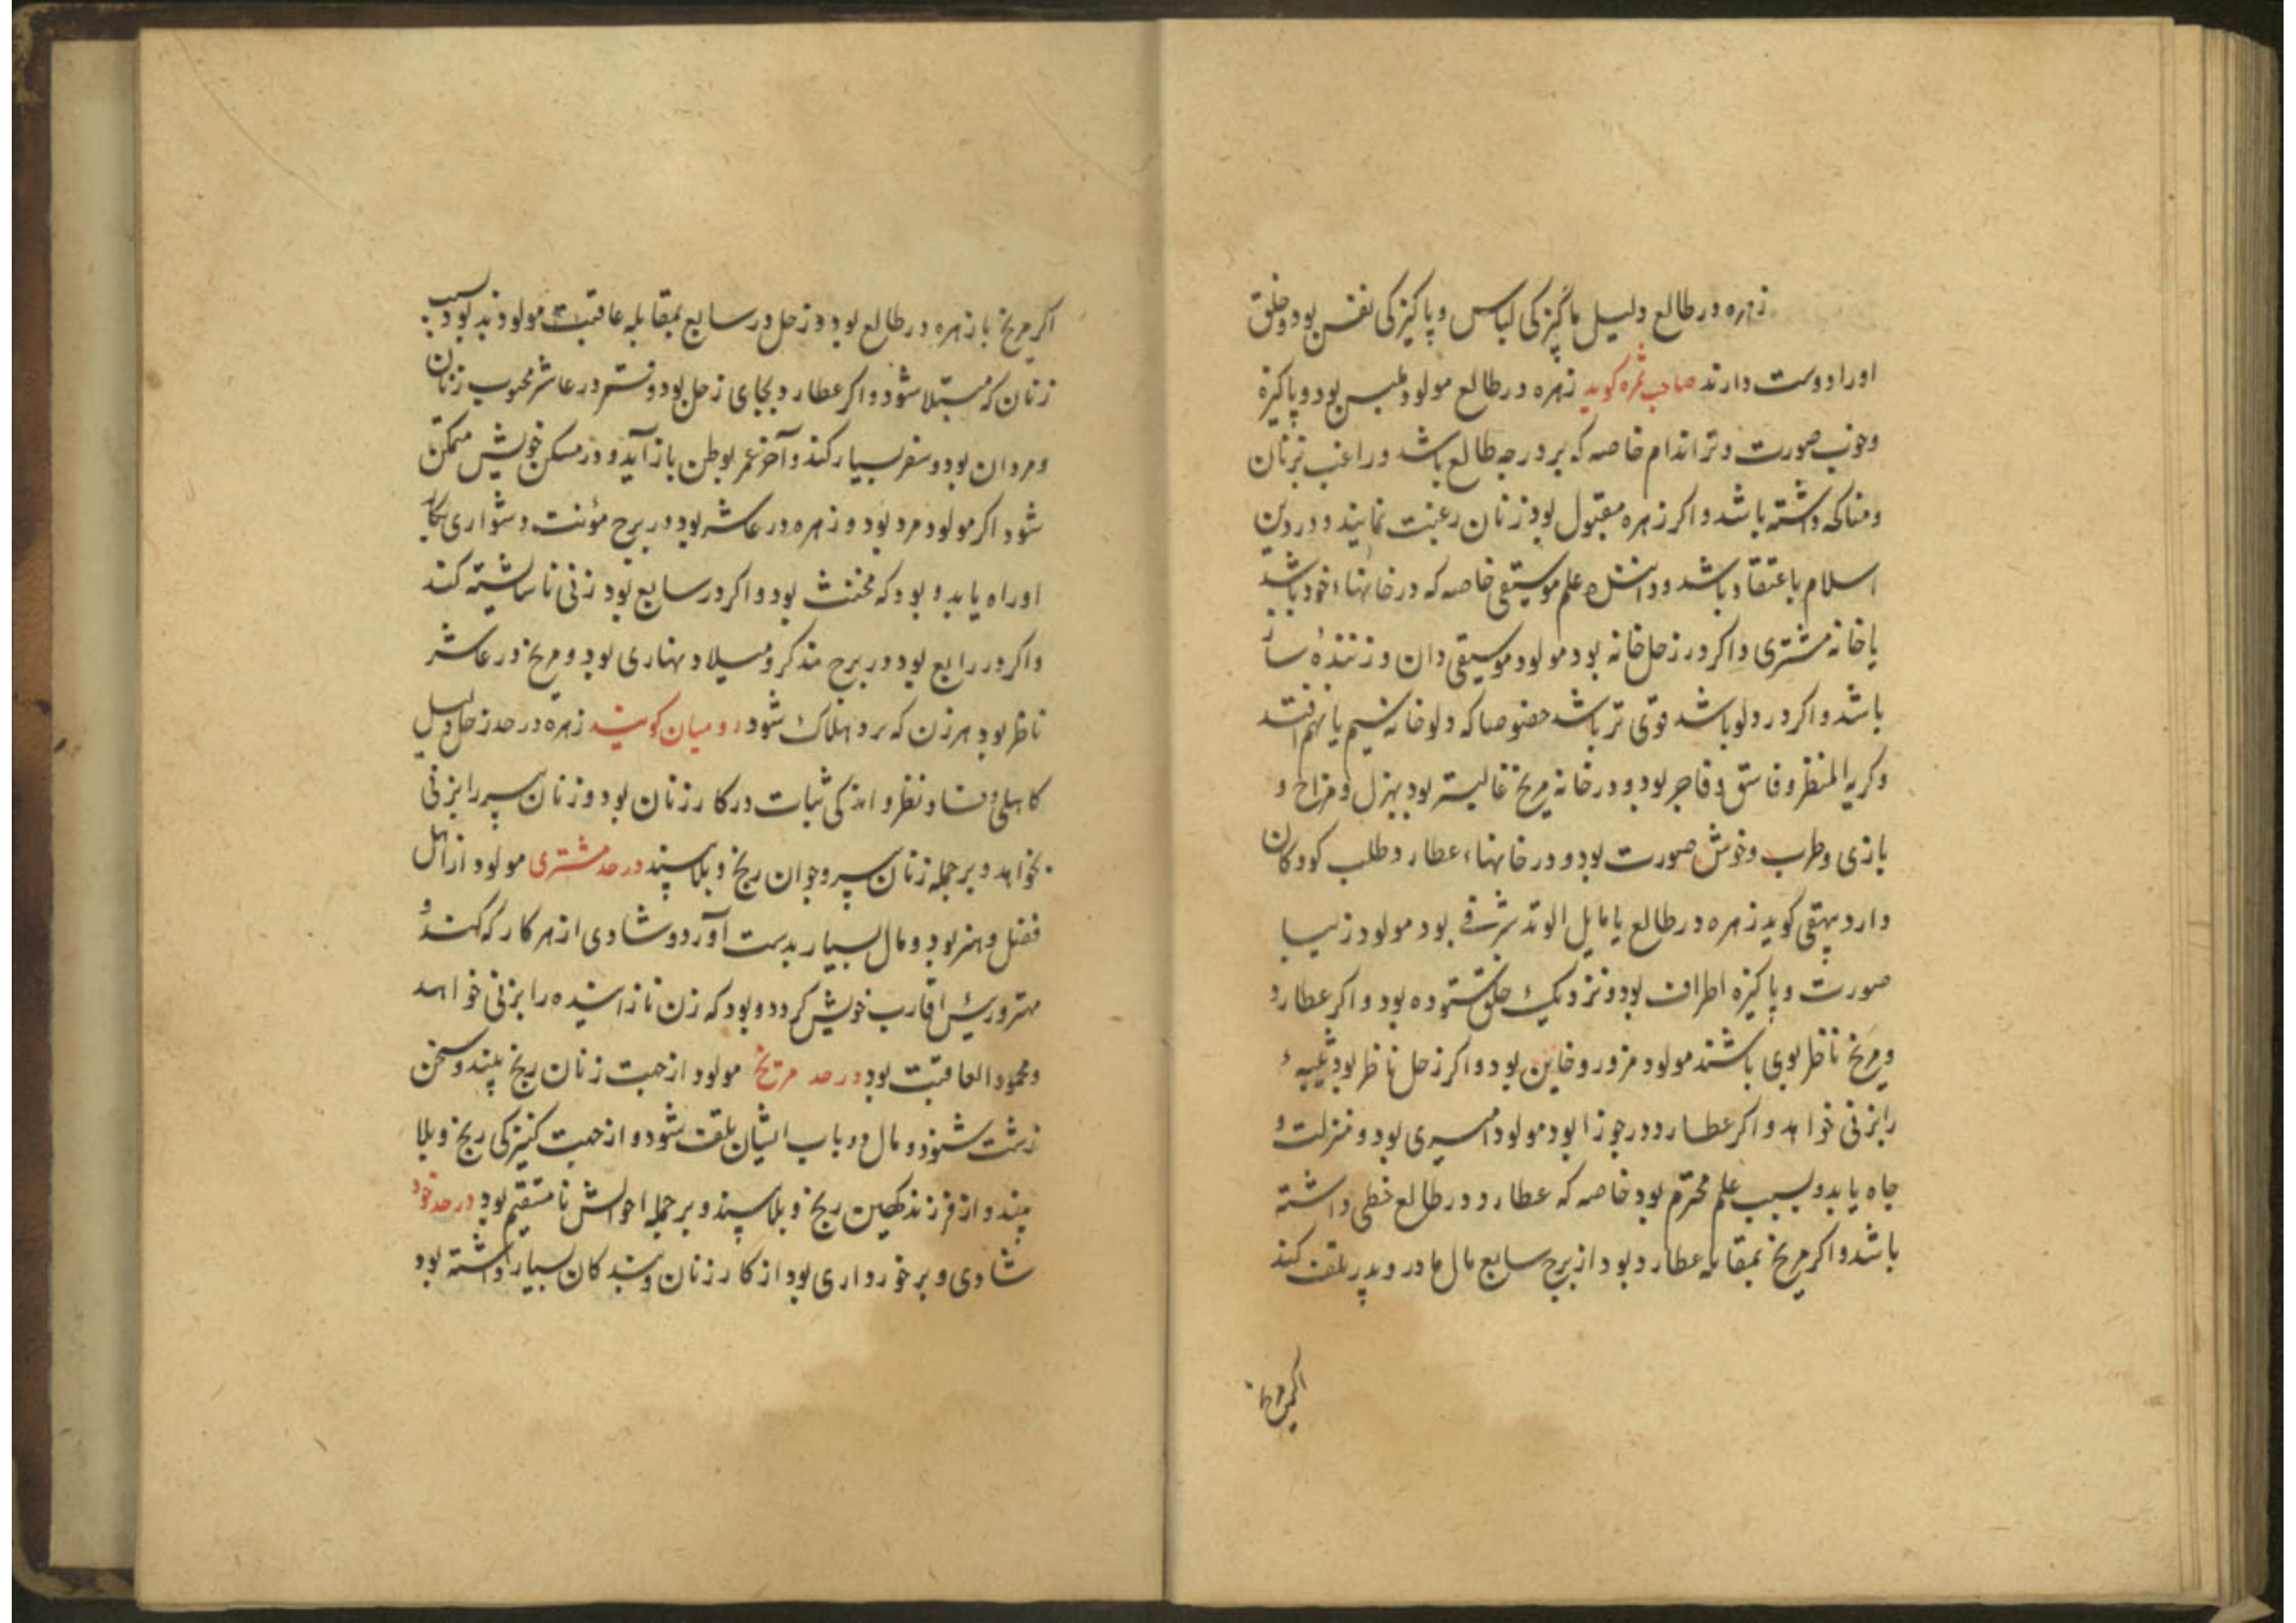 زهره در طالع دلیل پاکیزکی لباس و پاکیزکی نفس بود و خلق
اورا دوست دارند صاحب ثمره کوید زهره در طالع مولود ملبس بود و پاکیزه
و خوب صورت و تر اندام خاصه که بر درجه طالع باشد و راغب بزنان
و مناکحه داشته باشد و اکر زهره مقبول بود زنان رغبت نمایند و در دین
اسلام با عتقاد باشد و دانندهٔ علم موسیقی خاصه که در خانهاء خود باشد
یا خانه مشتری و اکر در زحل خانه بود مولود موسیقی دان و زنندهٔ ساز
باشد و اکر در دلو باشد قوی تر باشد خصوصا که دلو خانه نهم افتد
و کریه المنظر و فاسق و فاجر بود و در خانه مریخ بود بهزل و مزاح و
بازی و طرب و خوش صورت بود و در خانهاء عطارد طلب کودکان
دارد بیهقی کوید زهره در طالع یا مایل الوتد شرقی بود مولود زیبا
صورت و پاکیزه اطراف بود و نزدیک خلق ستوده بود و اکر عطارد
و مریخ ناظر بوی باشند مولود مزور و خاین بود و اکر زحل ناظر بود ثیبهٔ
را بزنی خواهد و اکر عطارد در جوزا بود مولود امیری بود و منزلت و
جاه یابد و بسبب علم محترم بود خاصه که عطارد در طالع خطی داشته
باشد و اکر مریخ بمقابله عطارد بود از برج سابع مال مادر و پدر تلف کند
اکر مریخ
اکر مریخ با زهره در طالع بود و زحل در سابع بمقابله عاقبت مولود بد بود بسبب
زنان که مبتلا شود و اکر عطارد بجای زحل بود و قمر در عاشر محبوب زنان
و مردان بود و سفر بسیار کند و آخر عمر بوطن باز آید و در مسکن خویش متمکن
شود اکر مولود مرد بود و زهره در عاشر بود در برج مؤنث دشواری بکار
او راه یابد و بود که مخنث بود و اکر در سابع بود زنی ناشایسته کند
و اکر در رابع بود در برج مذکر و میلاد نهاری بود و مریخ در عاشر
ناظر بود هر زن که برد هلاک شود رومیان کویند زهره در حد زحل دلیل
کاهلی و فساد نظر و اندکی ثبات در کار زنان بود و زنان پیر را بزنی
بخواهد و بر جمله زنان پیر و جوان رنج و بلا بیند در حد مشتری مولود از اهل
فضل و هنر بود و مال بسیار بدست آورد و شادی از هر کار که کند و
مهتر و رئیس اقارب خویش کردد و بود که زن نازاینده را بزنی خواهد
و محمود العاقبت بود در حد مریخ مولود از جهت زنان رنج بیند و سخن
زشت شنود و مال در باب ایشان تلف شود و از جهت کنیزکی رنج و بلا
بیند و از فرزند کهین رنج و بلا بیند و بر جمله احوالش نا مستقیم بود در حد خود
شادی و برخورداری بود از کار زنان و بندکان بسیار داشته بود